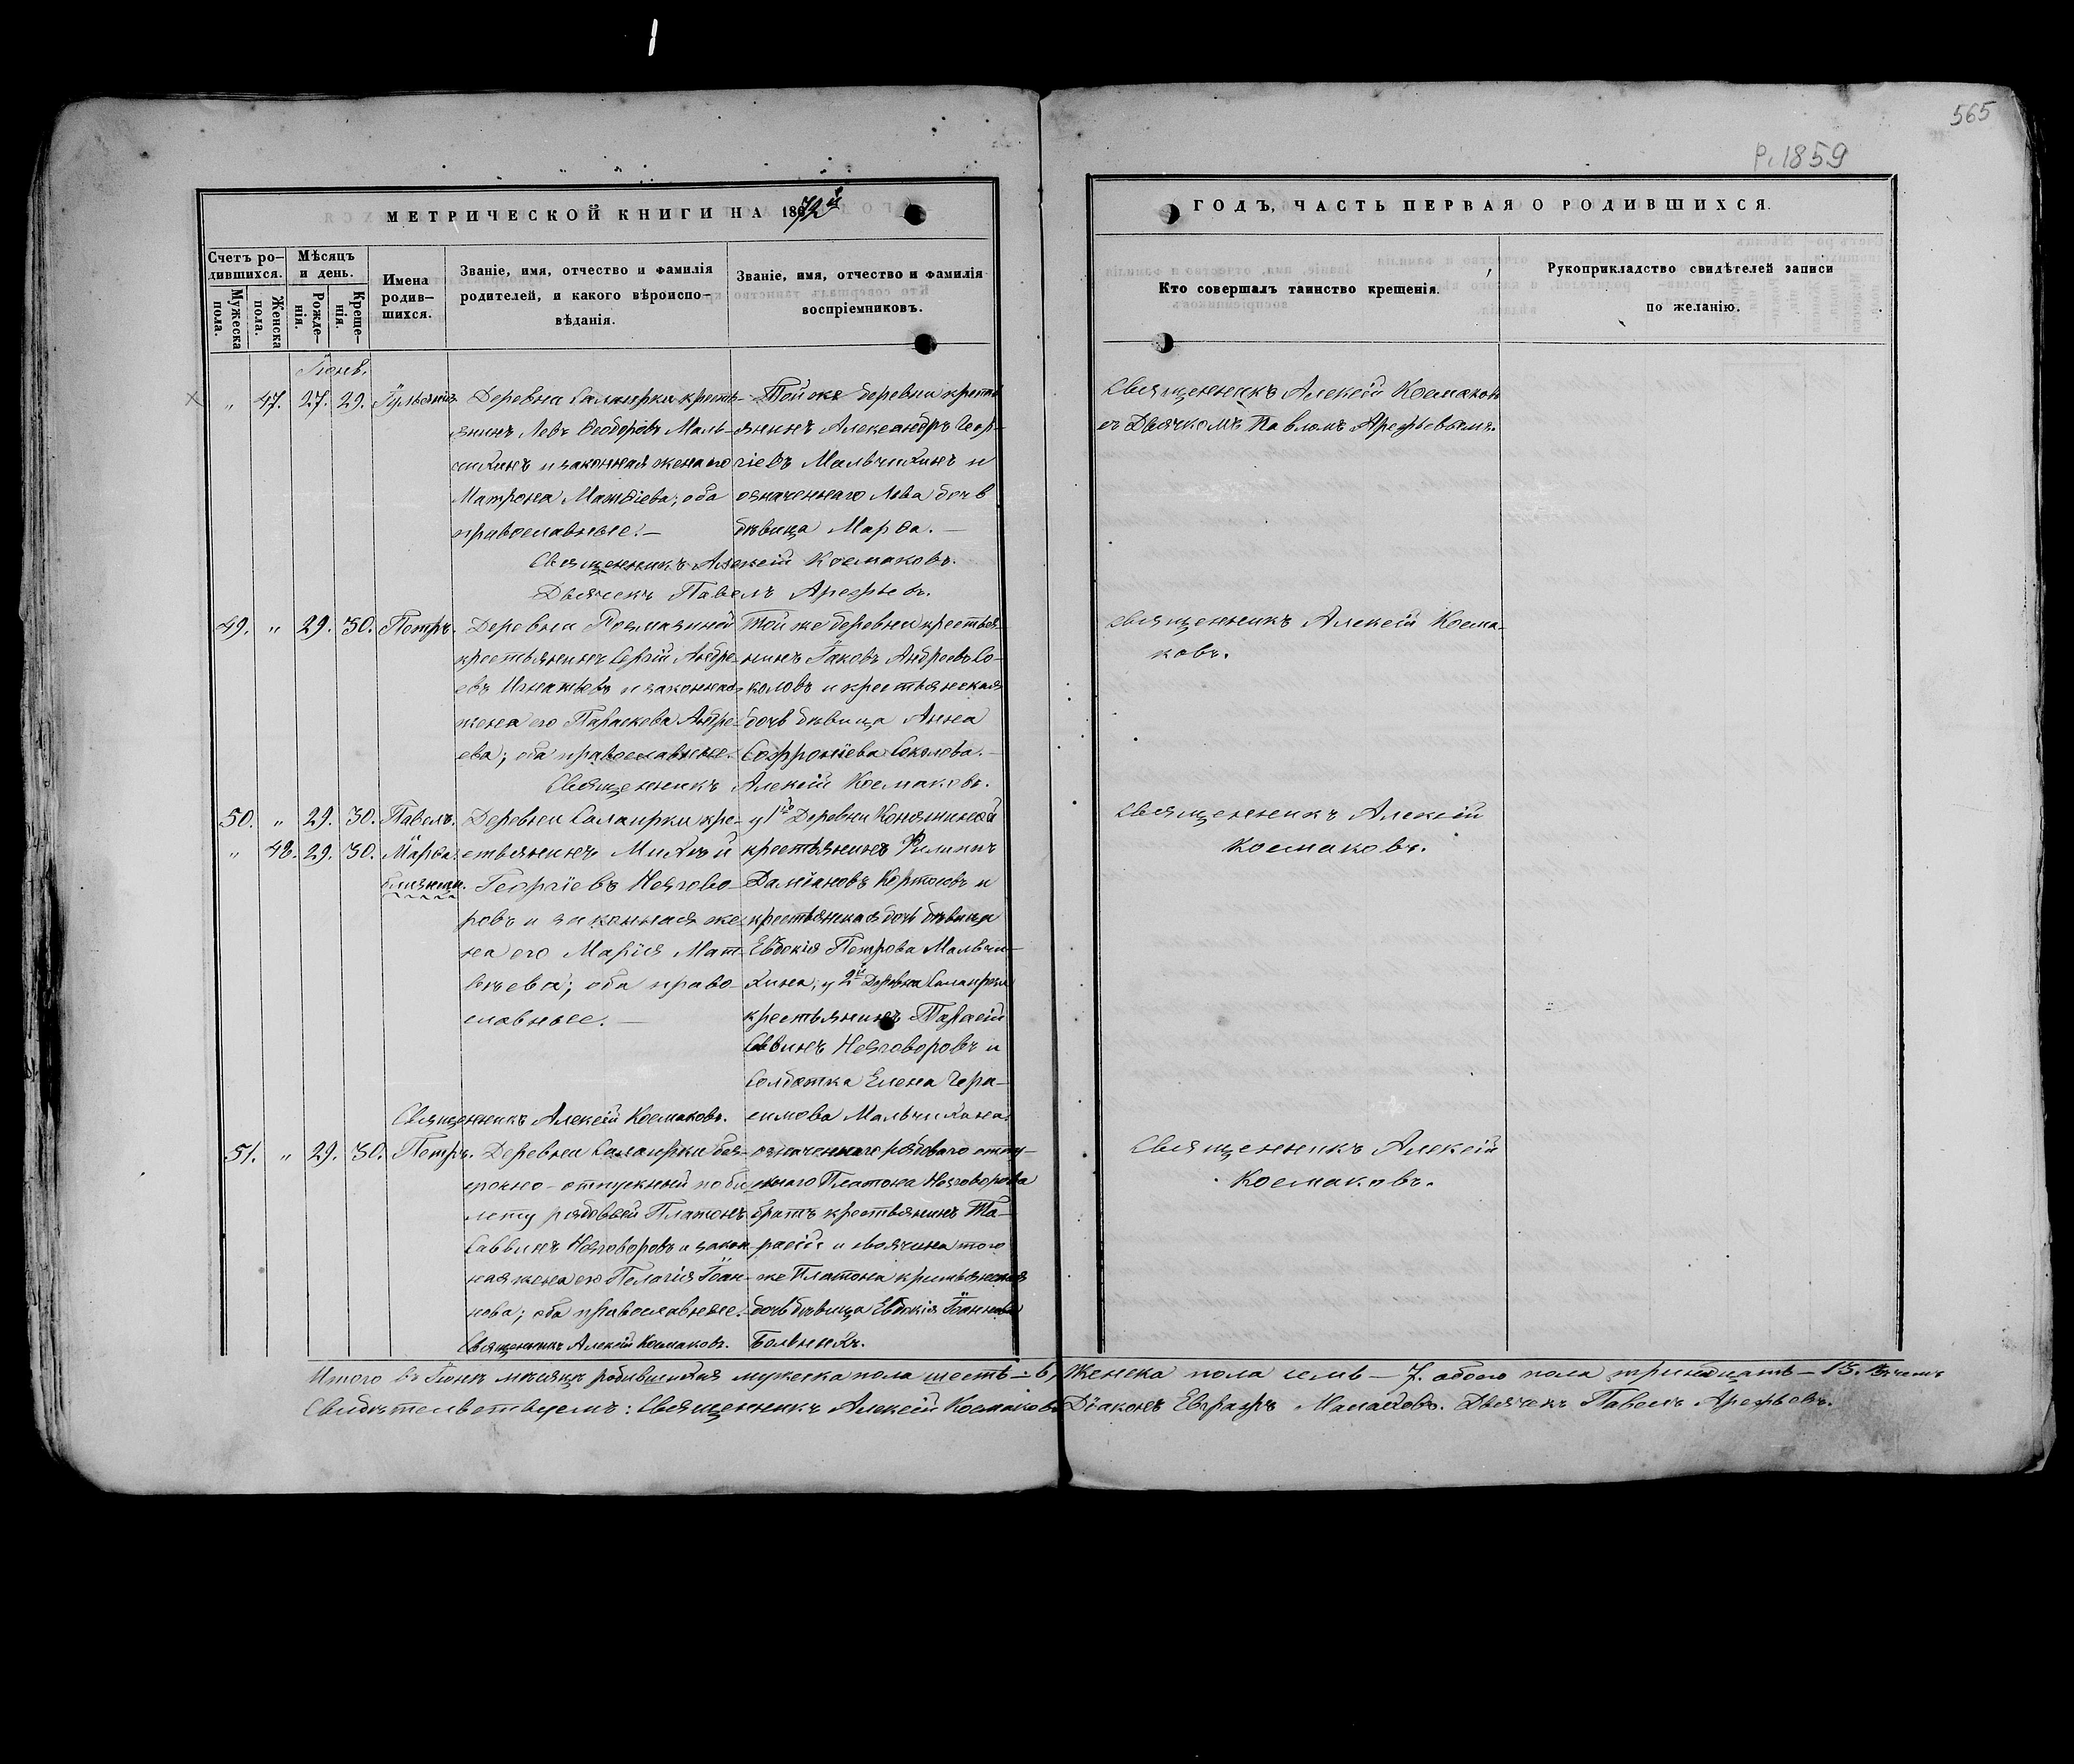 565
Р. 1859
МЕТРИЧЕСКОЙ КНИГИ НА 1872й
ГОДЪ, ЧАСТЬ ПЕРВАЯ О РОДИВШИХСЯ.
Счетъ ро-
дившихся.
Мужеска
пола.
Женска
пола.
Мѣсяцъ
и день.
Рожде-
нія.
Креще-
нія.
Имена
родив-
шихся.
Званіе, имя, отчество и фамилія
родителей, и какого вѣроиспо-
вѣданія.
Званіе, имя, отчество и фамилія
воспріемниковъ.
Кто совершалъ таинство крещенія.
Рукоприкладство свидѣтелей записи
по желанію.
Іюнь.
" 47. 27. 29. Деревни Салаирки кресть-
янинъ Левъ Ѳеодоровъ Маль-
чихинъ и законная жена его
Матрона Матѳіева; оба
православные.—
Той же деревни крестья
янинъ Александръ Геор-
гіевъ Мальчихинъ и
означеннаго Льва дочь
дѣвица Марѳа.—
Священникъ Алексій Космаковъ.
Дьячекъ Павелъ Арефьевъ.
Священникъ Алексій Космаковъ
съ Дьячкомъ Павломъ Арефьевымъ.
49. " 29. 30. Петръ. Деревни
крестьянинъ Сергій Андре-
евъ Игнатьевъ и законная
жена его Параскева Андре-
ева; оба православные.
Той же деревни крестья-
нинъ Іаковъ Андреевъ Со-
коловъ и крестьянская
дочь дѣвица Анна
Софроніева Соколова.—
Священникъ Алексій Космаковъ.
Священникъ Алексій Косма-
ковъ.
50. " 29. 30. Павелъ.
" 48. 29. 30. Марѳа.
близнецы.
Деревни Салаирки кре-
стьянинъ Михѣй
Георгіевъ Неягово-
ровъ и законная же-
на его Марія Мат-
вѣева; оба право-
славные.—
у 1го Деревни
крестьянинъ Филиппъ
Даміановъ и
крестьянская дочь дѣвица
Евдокія Петрова Мальчи-
хина, у 2й Деревни Салаирки
крестьянинъ Тарасій
Саввинъ Неяговоровъ и
Солдатка Елена Гера-
симова Мальчихина.
Священникъ Алексій Космаковъ.
Священникъ Алексій
Космаковъ.
51. " 29. 30. Петръ. Деревни Салаирки без-
срочно-отпускный по би-
лету рядовый Платонъ
Саввинъ Неяговоровъ и закон-
ная жена его Пелагія Іоан-
нова; оба православные.
Священникъ Алексій Космаковъ.
означеннаго рядоваго отпу-
скнаго Платона Неяговорова
братъ крестьянинъ Та-
расій и своячина того
же Платона крестьянская
дочь дѣвица Евдокія Іоаннова
Больныхъ.
Священникъ Алексій
Космаковъ.
Итого въ Іюнѣ мѣсяцѣ родившихся мужеска пола шесть—6, Женска пола семь—7. обоего пола тринадцать—13. въ чемъ
Свидѣтельствуемъ: Священникъ Алексій Космаковъ Діаконъ Евграфъ Малаховъ. Дьячекъ Павелъ Арефьевъ.